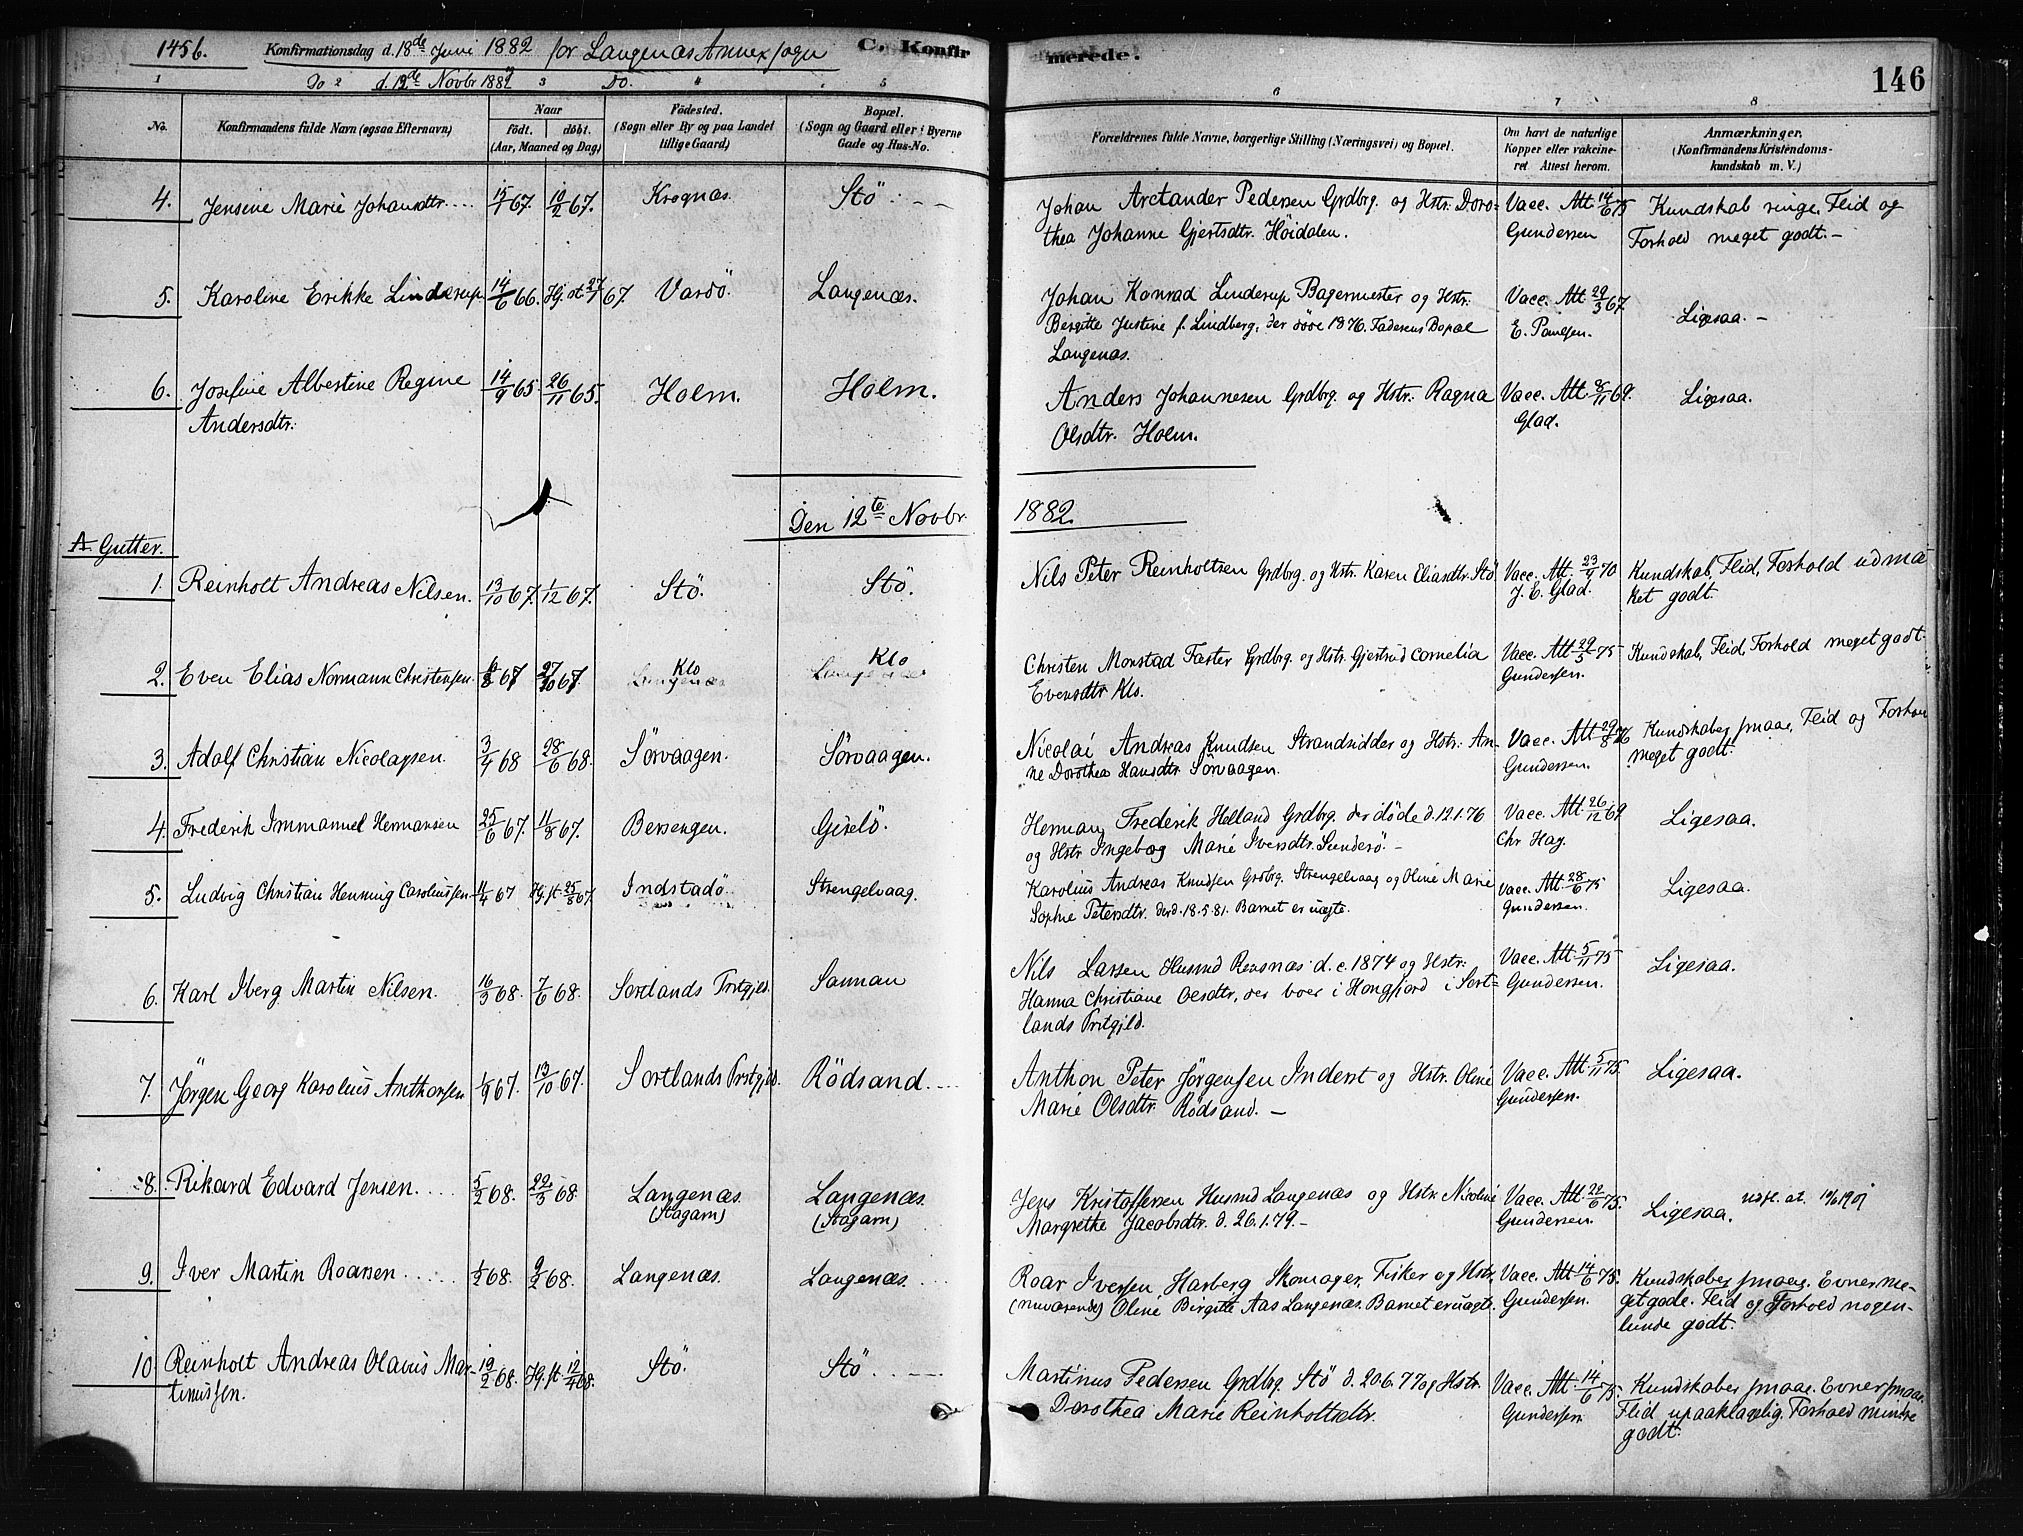 145b. Konfirmationsdag d. 18de Juni 1882 for Langenæs Annexsogn C. Konfir
merede. 146
1 Do 2 d. 12te Novbr 1882 3 Do. 4 5
6 7 8
No. Konfirmandens fulde Navn (ogsaa Efternavn)
Naar
født. døbt.
(Aar, Maaned og Dag)
Fødested.
(Sogn eller By og paa Landet
tillige Gaard)
Bopæl.
(Sogn og Gaard eller i Byerne
Gade og Hus-No.
Forældrenes fulde Navne, borgerlige Stilling (Næringsvei) og Bopæl.
Om havt de naturlige
Kopper eller vakcine-
ret Attest herom.
Anmærkninger.
(Konfirmandens Kristendoms-
kundskab m. V.)
4. Jensine Marie Johansdtr. 15/1 67. 10/2 67. Krognæs. Stö.
Johan Arctander Pedersen Grdbrg. og Hstr. Doro-
thea Johanne Gjertsdtr. Höidalen.
Vacc. Att. 14/6 75
Gundersen
Kundskab ringe, Flid og
Forhold meget godt.-
5. Karoline Erikke Linderup 14/6 66. Hj. st. 27/1 67. Vardö. Langenæs.
Johan Konrad Linderup Bagermester og Hstr.
Bergitte Justine f. Lindberg, der döde 1876. Faderens Bopæl
Langenæs.
Vacc. Att. 29/3 67.
E. Paulsen.
Ligesaa.-
6. Josefine Albertine Regine
Andersdtr.
14/9 65. 26/11 65. Holm. Holm.
Anders Johannesen Grdbrg. og Hstr. Ragna
Olsdtr. Holm.
Vacc. Att. 8/11 69.
Glad.
Ligesaa.
Den 12te Novbr 1882.
A Gutter.
1. Reinholt Andreas Nilsen. 13/10 67. 1/12 67. Stö. Stö.
Nils Peter Reinholtsen Grdbrg. og Hstr. Karen Eliasdtr. Stö
Vacc. Att. 23/4 70
J. E. Glad.
Kundskab, Flid, Forhold udmær
ket godt.
2. Even Elias Normann Christensen 8/8 67 27/10 67. Klo Klo
Christen Monstad Faster Grdbrg. og Hstr. Gjertrud Cornelia
Evensdtr. Klo.
Vacc. Att. 29/5 75
Gundersen.
Kundskab, Flid, Forhold meget godt.
3. Adolf Christian Nicolaysen. 3/4 68 28/6 68. Sörvaagen. Sörvaagen.
Nicolai Andreas Knudsen Strandsidder og Hstr. An-
ne Dorothea Hansdtr. Sörvaagen.
Vacc. Att. 29/8 76
Gundersen.
Kundskaber smaae, Flid og Forhold
meget godt.
4. Frederik Immanuel Hermansen 25/6 67. 11/8 67. Bersengen. Gislö.
Herman Frederik Helland Grdbrg. der döde d. 12.1.76
og Hstr. Ingeborg Marie Iversdtr. Sunderö.-
Vacc. Att. 26/12 69
Chr Hag.
Ligesaa.
5. Ludvig Christian Henning Caroliussen 11/4 67 Hj. st 25/8 67. Indstadö Strengelvaag.
Karolius Andreas Knudsen Grdbrg. Strengelvaag og Oline Marie
Sophie Petersdtr. der d. 18.5.81. Barnet er uægte.
Vacc. Att. 28/6 75
Gundersen.
Ligesaa.
6. Karl Iberg Martin Nilsen. 16/3 68. 7/6 68. Sortlands Prstgjld. Sannan
Nils Larsen Husmd Rensnæs d. c. 1874 og Hstr.
Hanna Christiane Olsdtr, der boer i Hongfjord i Sort-
lands Prstgjld.
Vacc. Att. 5/11 75
Gundersen.
Ligesaa.
7. Jörgen Georg Karolius Anthonsen 1/9 67. 13/10 67. Sortlands Prstgjld. Rödsand.
Anthon Peter Jörgensen Inderst og Hstr. Oline
Marie Olsdtr. Rödsand.-
Vacc. Att. 5/11 75.
Gundersen.
Ligesaa.
8. Rikard Edvard Jensen. 5/2 68. 22/3 68 Langenæs.
(Stagarn)
Langenæs.
(Stagarn)
Jens Kristoffersen Husmd Langenæs og Hstr. Nicoline
Margrethe Jacobsdtr. d. 26.1.79.-
Vacc. Att. 22/6 75.
Gundersen.
Ligesaa. udst. at. 1901
9. Iver Martin Roarsen. 1/2 68. 9/2 68. Langenæs. Langenæs.
Roar Iversen Harberg Skomager, Fisker og Hstr.
(nuværende) Oline Birgitte Aas Langenæs. Barnet er uægte.
Vacc. Att. 14/6 75.
Gundersen.
Kundskaber smaae. Evner me-
get gode. Flid og Forhold nogen-
lunde godt.
10. Reinholt Andreas Olavus Mar-
tinussen.
19/2 68. Hj. st 12/4 68. Stö. Stö.
Martinus Pedersen Grdbrg. Stö d. 20.6.77 og Hstr.
Dorothea Marie Reinholtsdtr.
Vacc. Att. 14/6 75.
Gundersen
Kundskaber smaae. Evner smaae.
Flid upaaklagelig. Forhold mindre
godt.